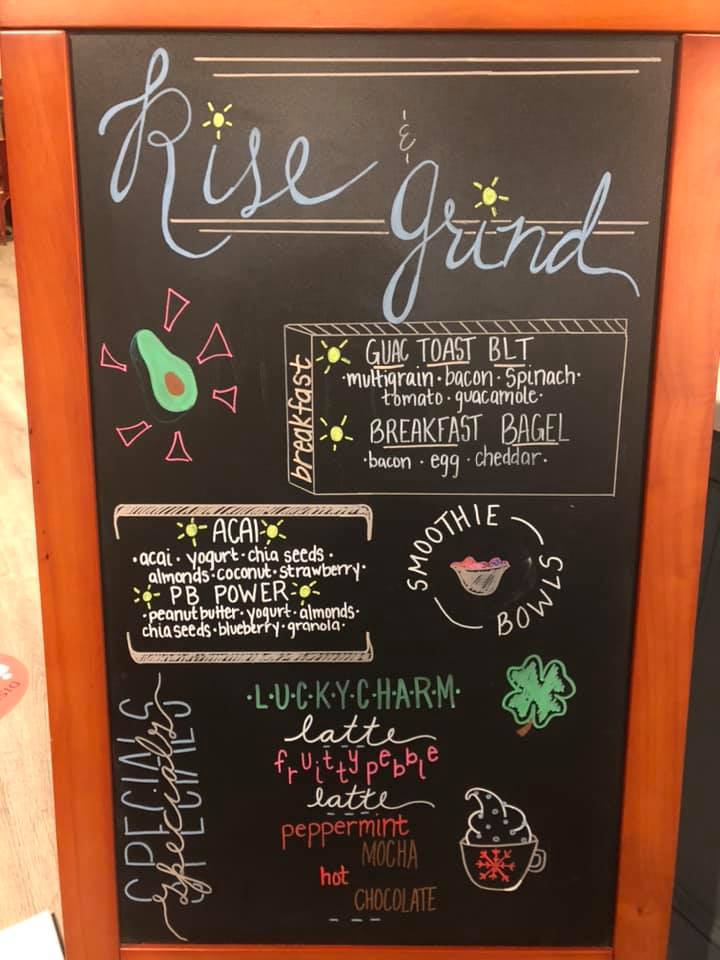 Rise
& Grind
breakfast
GUAC TOAST BLT
·multigrain·bacon·spinach·
tomato·guacamole·
BREAKFAST BAGEL
·bacon·egg·cheddar·
ACAI
·acai·yogurt·chia seeds·
almonds·coconut·strawberry·
PB POWER
·peanut butter·yogurt·almonds·
chia seeds·blueberry·granola·
SMOOTHIE
BOWLS
SPECIALS
specials
·L·U·C·K·Y·C·H·A·R·M·
latte
fruitty pebble
latte
peppermint
MOCHA
hot
CHOCOLATE